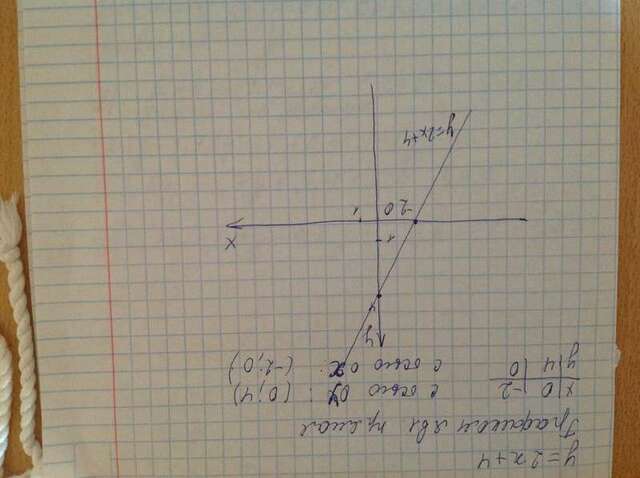 y = 2x + 4
Графиком явл прямая
x | 0 | -2
y | 4 | 0
с осью оу: (0; 4)
с осью ох: (-2; 0)
y
4
1
x
-2 0
1
y=2x+4